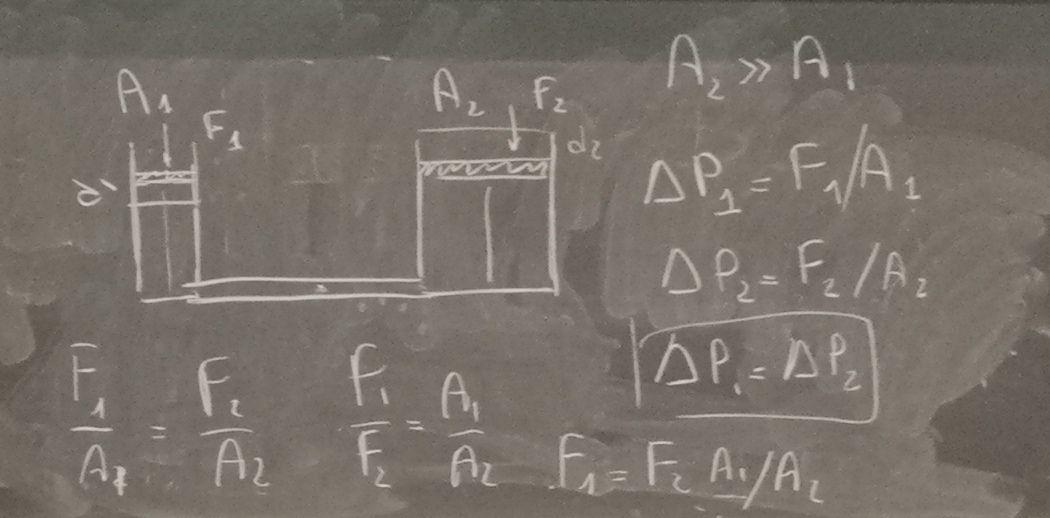 A₁ F₁ A₂ F₂
d₁ d₂
A₂ >> A₁
ΔP₁ = F₁/A₁
ΔP₂ = F₂/A₂
ΔP₁ = ΔP₂
F₁/A₁ = F₂/A₂
F₁/F₂ = A₁/A₂
F₁ = F₂ A₁/A₂